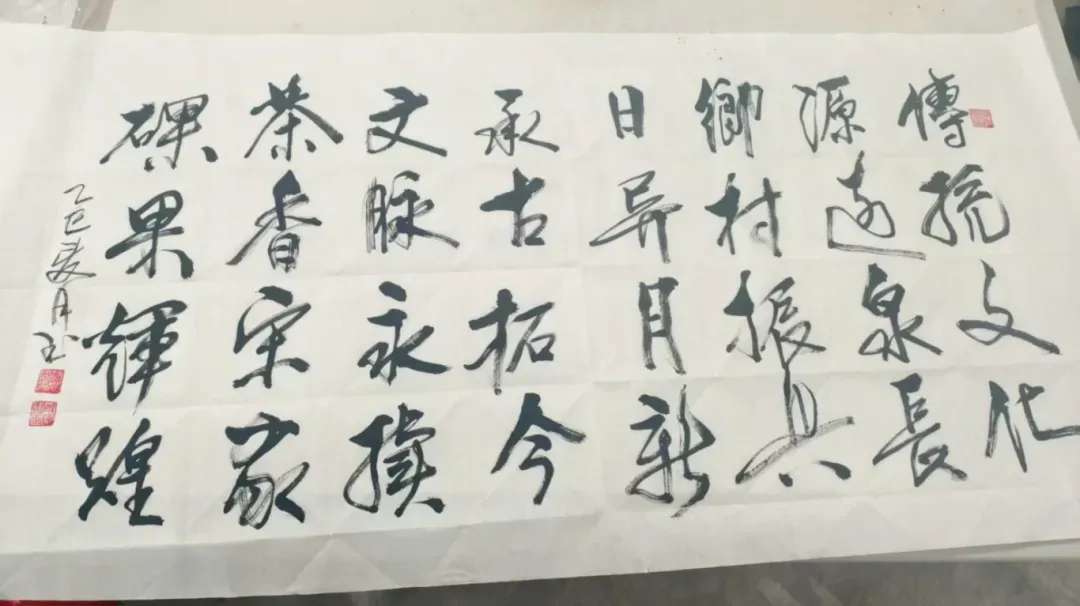 傳統文化
源遠泉長
鄉村振兴
日异月新
承古拓今
文脉永續
茶香宋家
碩果輝煌
乙巳夏月玉